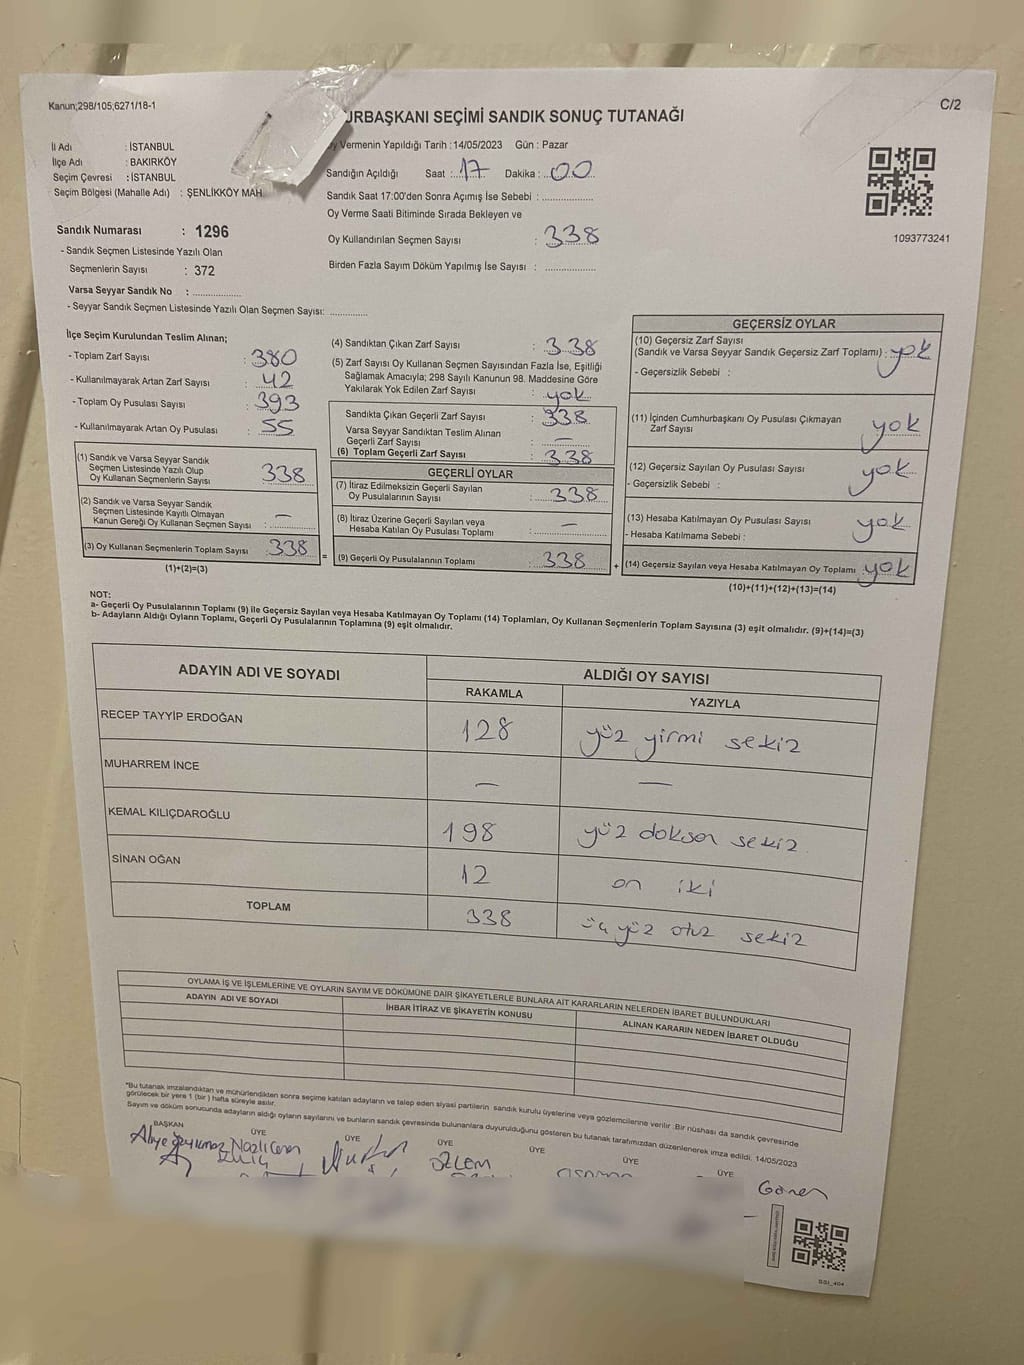 Kanun;298/105;6271/18-1
C/2
URBAŞKANI SEÇİMİ SANDIK SONUÇ TUTANAĞI
İl Adı : İSTANBUL
İlçe Adı : BAKIRKÖY
Seçim Çevresi : İSTANBUL
Seçim Bölgesi (Mahalle Adı) : ŞENLİKKÖY MAH.
Sandık Numarası : 1296
- Sandık Seçmen Listesinde Yazılı Olan
Seçmenlerin Sayısı : 372
Varsa Seyyar Sandık No : ....................
- Seyyar Sandık Seçmen Listesinde Yazılı Olan Seçmen Sayısı: ...............
Oy Vermenin Yapıldığı Tarih :14/05/2023 Gün : Pazar
Sandığın Açıldığı Saat : 17 Dakika : 00
Sandık Saat 17:00'den Sonra Açmış İse Sebebi : ....................
Oy Verme Saati Bitiminde Sırada Bekleyen ve
Oy Kullandırılan Seçmen Sayısı : 338
Birden Fazla Sayım Döküm Yapılmış İse Sayısı : ....................
1093773241
İlçe Seçim Kurulundan Teslim Alınan;
- Toplam Zarf Sayısı : 380
- Kullanılmayarak Artan Zarf Sayısı : 42
- Toplam Oy Pusulası Sayısı : 393
- Kullanılmayarak Artan Oy Pusulası : 55
(1) Sandık ve Varsa Seyyar Sandık
Seçmen Listesinde Yazılı Olup
Oy Kullanan Seçmenlerin Sayısı : 338
(2) Sandık ve Varsa Seyyar Sandık
Seçmen Listesinde Kayıtlı Olmayan
Kanun Gereği Oy Kullanan Seçmen Sayısı : —
(3) Oy Kullanan Seçmenlerin Toplam Sayısı : 338
(1)+(2)=(3)
=
(4) Sandıktan Çıkan Zarf Sayısı : 338
(5) Zarf Sayısı Oy Kullanan Seçmen Sayısından Fazla İse, Eşitliği
Sağlamak Amacıyla; 298 Sayılı Kanunun 98. Maddesine Göre
Yakılarak Yok Edilen Zarf Sayısı : yok
Sandıkta Çıkan Geçerli Zarf Sayısı : 338
Varsa Seyyar Sandıktan Teslim Alınan
Geçerli Zarf Sayısı : —
(6) Toplam Geçerli Zarf Sayısı : 338
GEÇERLİ OYLAR
(7) İtiraz Edilmeksizin Geçerli Sayılan
Oy Pusulalarının Sayısı : 338
(8) İtiraz Üzerine Geçerli Sayılan veya
Hesaba Katılan Oy Pusulası Toplamı : —
(9) Geçerli Oy Pusulalarının Toplamı : 338
+
GEÇERSİZ OYLAR
(10) Geçersiz Zarf Sayısı
(Sandık ve Varsa Seyyar Sandık Geçersiz Zarf Toplamı) : yok
- Geçersizlik Sebebi :
(11) İçinden Cumhurbaşkanı Oy Pusulası Çıkmayan
Zarf Sayısı yok
(12) Geçersiz Sayılan Oy Pusulası Sayısı yok
- Geçersizlik Sebebi :
(13) Hesaba Katılmayan Oy Pusulası Sayısı yok
- Hesaba Katılmama Sebebi :
(14) Geçersiz Sayılan veya Hesaba Katılmayan Oy Toplamı : yok
(10)+(11)+(12)+(13)=(14)
NOT:
a- Geçerli Oy Pusulalarının Toplamı (9) ile Geçersiz Sayılan veya Hesaba Katılmayan Oy Toplamı (14) Toplamları, Oy Kullanan Seçmenlerin Toplam Sayısına (3) eşit olmalıdır. (9)+(14)=(3)
b- Adayların Aldığı Oyların Toplamı, Geçerli Oy Pusulalarının Toplamına (9) eşit olmalıdır.
ADAYIN ADI VE SOYADI
ALDIĞI OY SAYISI
RAKAMLA YAZIYLA
RECEP TAYYİP ERDOĞAN 128 yüz yirmi sekiz
MUHARREM İNCE — —
KEMAL KILIÇDAROĞLU 198 yüz doksan sekiz
SİNAN OĞAN 12 on iki
TOPLAM 338 üç yüz otuz sekiz
OYLAMA İŞ VE İŞLEMLERİNE VE OYLARIN SAYIM VE DÖKÜMÜNE DAİR ŞİKAYETLERLE BUNLARA AİT KARARLARIN NELERDEN İBARET BULUNDUKLARI
ADAYIN ADI VE SOYADI
İHBAR İTİRAZ VE ŞİKAYETİN KONUSU
ALINAN KARARIN NEDEN İBARET OLDUĞU
*Bu tutanak imzalandıktan ve mühürlendikten sonra seçime katılan adayların ve talep eden siyasi partilerin sandık kurulu üyelerine veya gözlemcilerine verilir .Bir nüshası da sandık çevresinde
görülecek bir yere 1 (bir ) hafta süreyle asılır.
Sayım ve döküm sonucunda adayların aldığı oyların sayılarını ve bunların sandık çevresinde bulunanlara duyurulduğunu gösteren bu tutanak tarafımızdan düzenlenerek imza edildi. 14/05/2023
BAŞKAN ÜYE ÜYE ÜYE ÜYE ÜYE ÜYE
ÖZLEM
SSI_404